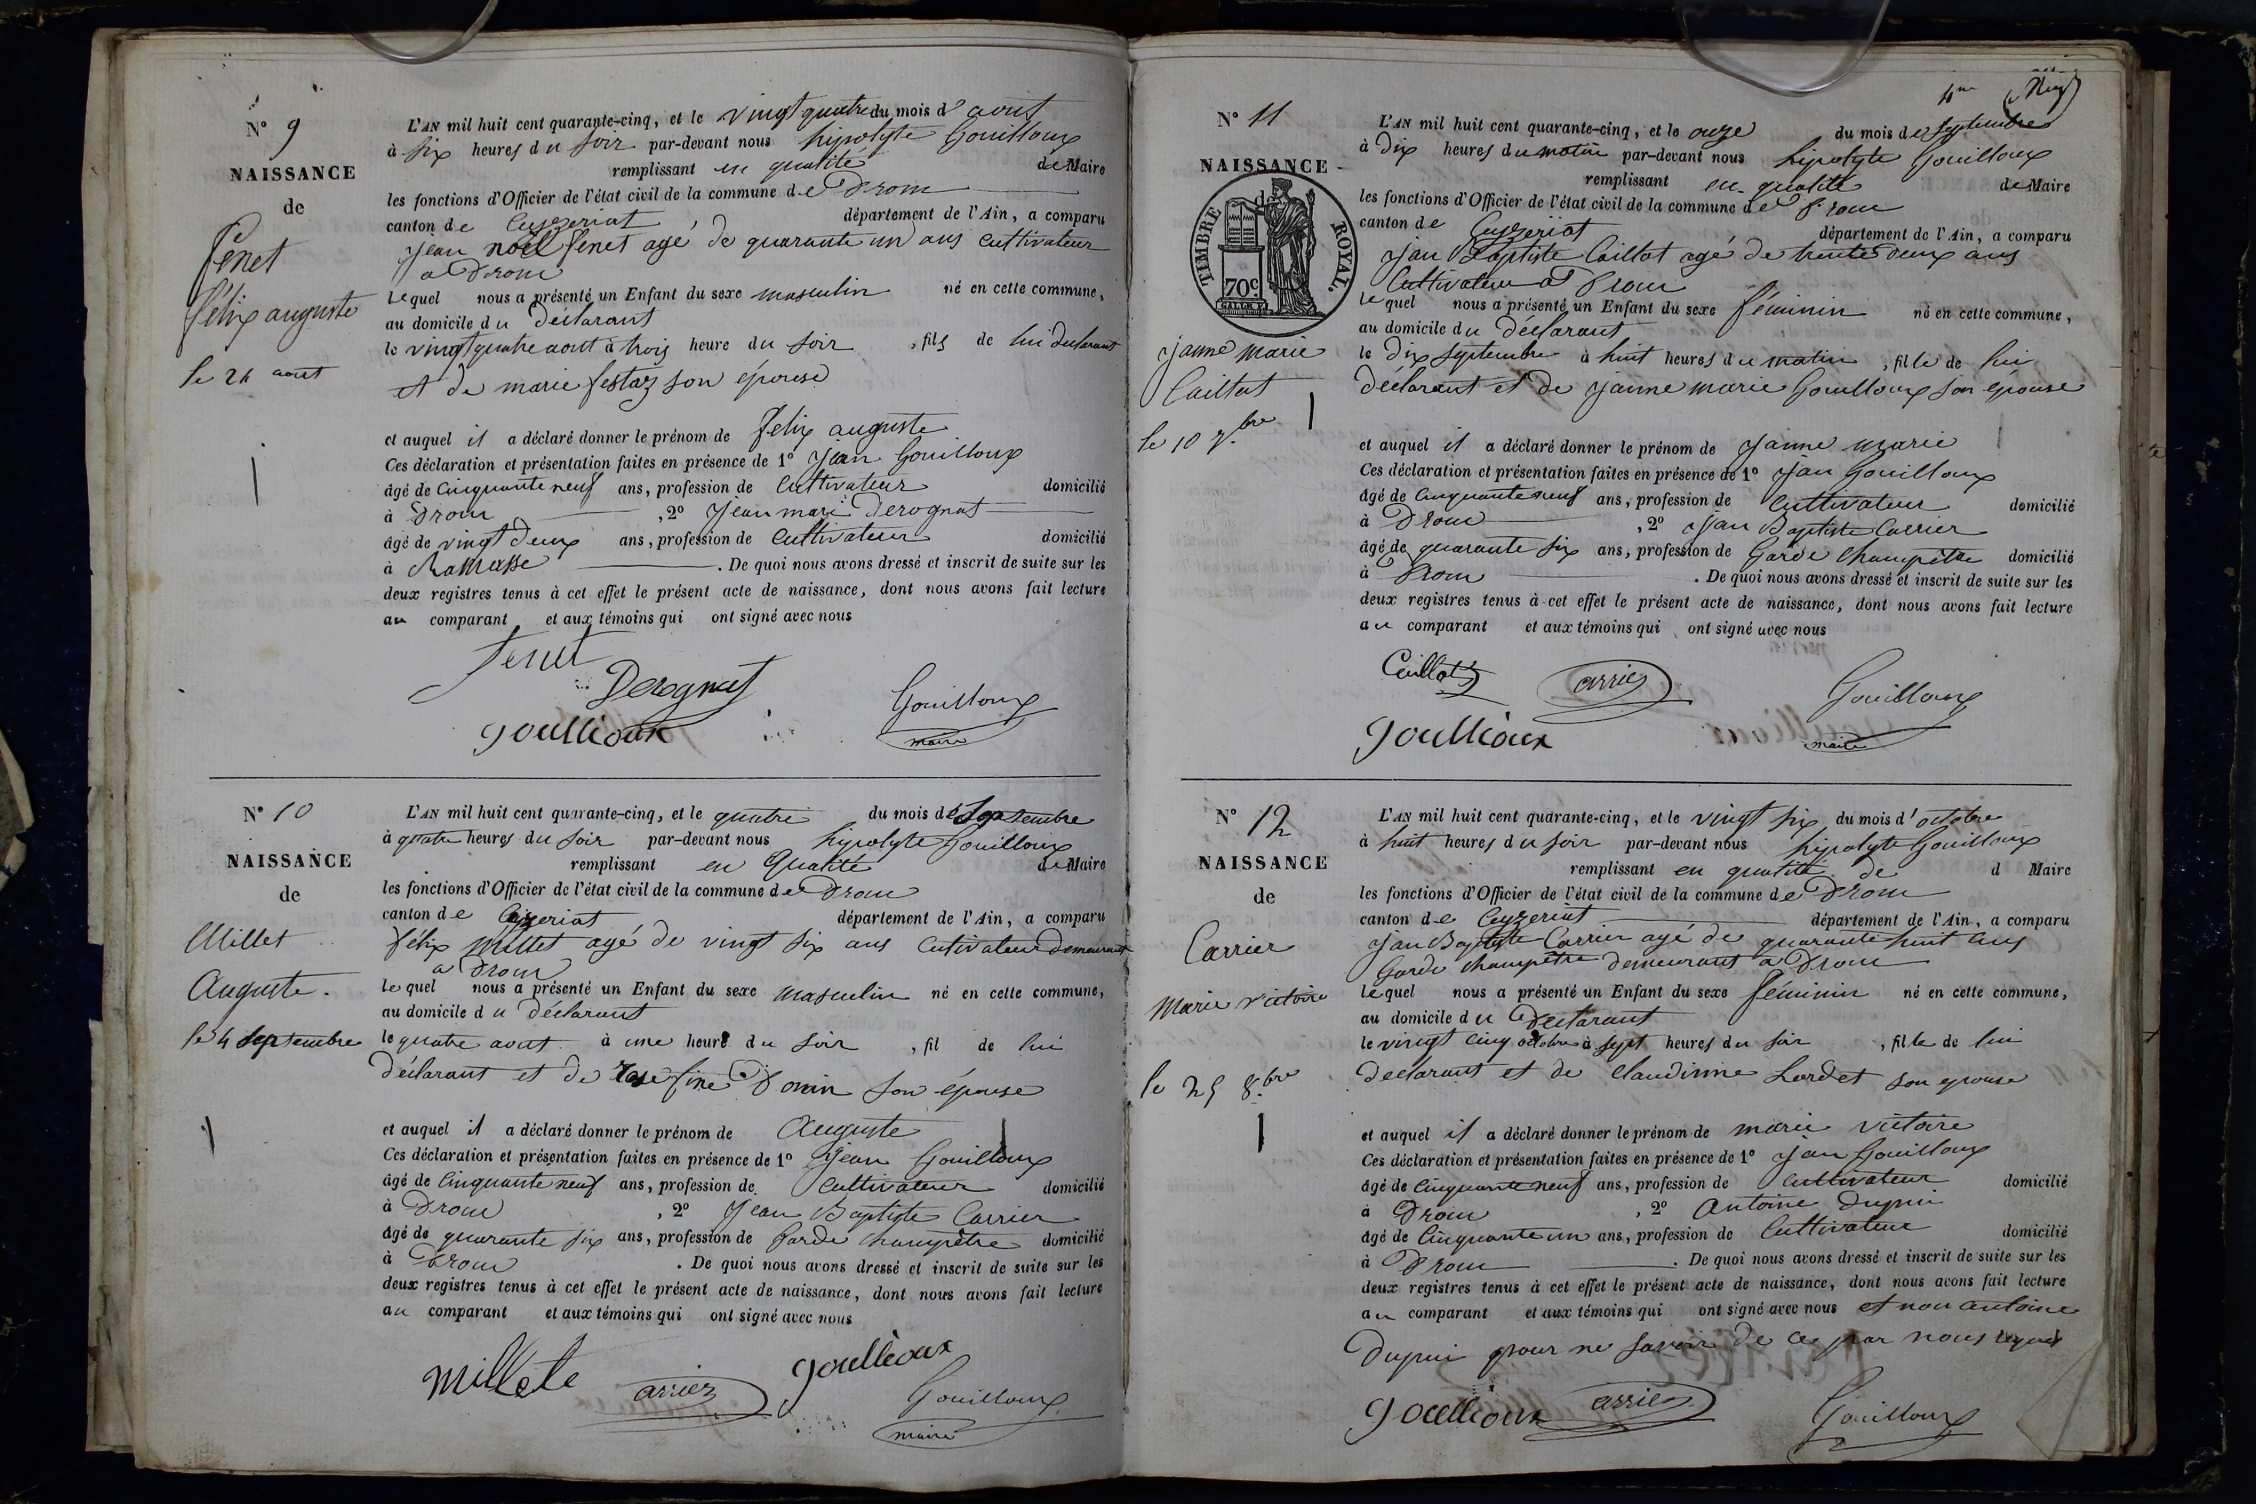 N° 9
NAISSANCE
de
fenet
félix auguste
le 24 aout
L'AN mil huit cent quarante-cinq, et le vingt quatre du mois d'aout
à six heures du soir par-devant nous hipolyte Gouilloux
remplissant en qualité de Maire
les fonctions d'Officier de l'état civil de la commune de Drom
canton de Ceyzeriat département de l'Ain, a comparu
jean noël fenet agé de quarante un ans cultivateur
a Drom
lequel nous a présenté un Enfant du sexe masculin né en cette commune,
au domicile du déclarant
le vingt quatre aout à trois heure du soir, fils de lui declarant
et de marie festaz son épouse
et auquel il a déclaré donner le prénom de félix auguste
Ces déclaration et présentation faites en présence de 1° jean Gouilloux
âgé de cinquante neuf ans, profession de cultivateur domicilié
à Drom, 2° jean marie Derognat
âgé de vingt deux ans, profession de cultivateur domicilié
à Ramasse. De quoi nous avons dressé et inscrit de suite sur les
deux registres tenus à cet effet le présent acte de naissance, dont nous avons fait lecture
au comparant et aux témoins qui ont signé avec nous
fenet
Derognat
Gouilloux
goullioux
maire
N° 10
NAISSANCE
de
Millet
Auguste.
le 4 septembre
L'AN mil huit cent quarante-cinq, et le quatre du mois de septembre
à quatre heures du soir par-devant nous hipolyte Gouilloux
remplissant en qualité de Maire
les fonctions d'Officier de l'état civil de la commune de Drom
canton de Ceyzeriat département de l'Ain, a comparu
félix millet agé de vingt six ans cutivateur demeurant
a Drom
lequel nous a présenté un Enfant du sexe masculin né en cette commune,
au domicile du déclarant
le quatre aout à une heure du soir, fil de lui
déclarant et de fine Donin son épouse
et auquel il a déclaré donner le prénom de Auguste
Ces déclaration et présentation faites en présence de 1° jean Gouilloux
âgé de cinquante neuf ans, profession de cultivateur domicilié
à Drom, 2° jean Baptiste Carrier
âgé de quarante six ans, profession de garde champêtre domicilié
à Drom. De quoi nous avons dressé et inscrit de suite sur les
deux registres tenus à cet effet le présent acte de naissance, dont nous avons fait lecture
au comparant et aux témoins qui ont signé avec nous
goullioux
arrier
Gouilloux
maire
N° 11
NAISSANCE
de
TIMBRE ROYAL.
70c.
janne marie
Caillat
le 10 7.bre
L'AN mil huit cent quarante-cinq, et le onze du mois de septembre
à dix heures du matin par-devant nous hipolyte Gouilloux
remplissant en qualité de Maire
les fonctions d'Officier de l'état civil de la commune de Drom
canton de Ceyzeriat département de l'Ain, a comparu
jan Baptiste Caillat agé de trente deux ans
Cultivateur a Drom
lequel nous a présenté un Enfant du sexe féminin né en cette commune,
au domicile du déclarant
le dix septembre à huit heures du matin, fille de lui
déclarant et de janne marie Gouilloux son épouse
et auquel il a déclaré donner le prénom de janne marie
Ces déclaration et présentation faites en présence de 1° jan Gouilloux
âgé de cinquante neuf ans, profession de cultivateur domicilié
à Drom, 2° jan Baptiste Carrier
âgé de quarante six ans, profession de garde champêtre domicilié
à Drom. De quoi nous avons dressé et inscrit de suite sur les
deux registres tenus à cet effet le présent acte de naissance, dont nous avons fait lecture
au comparant et aux témoins qui ont signé avec nous
Caillat
arrier
Gouilloux
goullioux
maire
N° 12
NAISSANCE
de
Carrier
Marie victoire
le 25 8.bre
L'AN mil huit cent quarante-cinq, et le vingt six du mois d'octobre
à huit heures du soir par-devant nous hipolyte Gouilloux
remplissant en qualité de d Maire
les fonctions d'Officier de l'état civil de la commune de Drom
canton de Ceyzeriat département de l'Ain, a comparu
jan Baptiste Carrier agé de quarante huit ans
Garde champêtre demeurant a Drom
lequel nous a présenté un Enfant du sexe féminin né en cette commune,
au domicile du declarant
le vingt cinq octobre à sept heures du soir, fille de lui
declarant et de claudinne Lordet son epouse
et auquel il a déclaré donner le prénom de marie victoire
Ces déclaration et présentation faites en présence de 1° jan Gouilloux
âgé de cinquante neuf ans, profession de cultivateur domicilié
à Drom, 2° antoine dupui
âgé de cinquante un ans, profession de cultivateur domicilié
à Drom. De quoi nous avons dressé et inscrit de suite sur les
deux registres tenus à cet effet le présent acte de naissance, dont nous avons fait lecture
au comparant et aux témoins qui ont signé avec nous et non antoine
dupui pour ne savoir de ce par nous requis
goullioux
arrier
Gouilloux